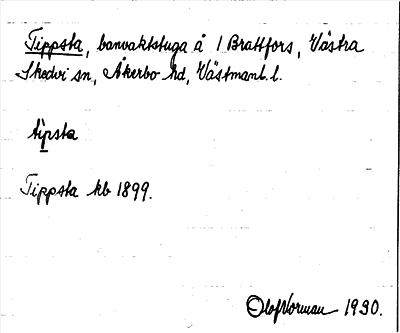 Tippsta, banvaktstuga å 1 Brattfors, Västra
Skedvi sn, Åkerbo hd, Västmanl. l.
tipsta
Tippsta kb 1899.
Olof Norman 1930.